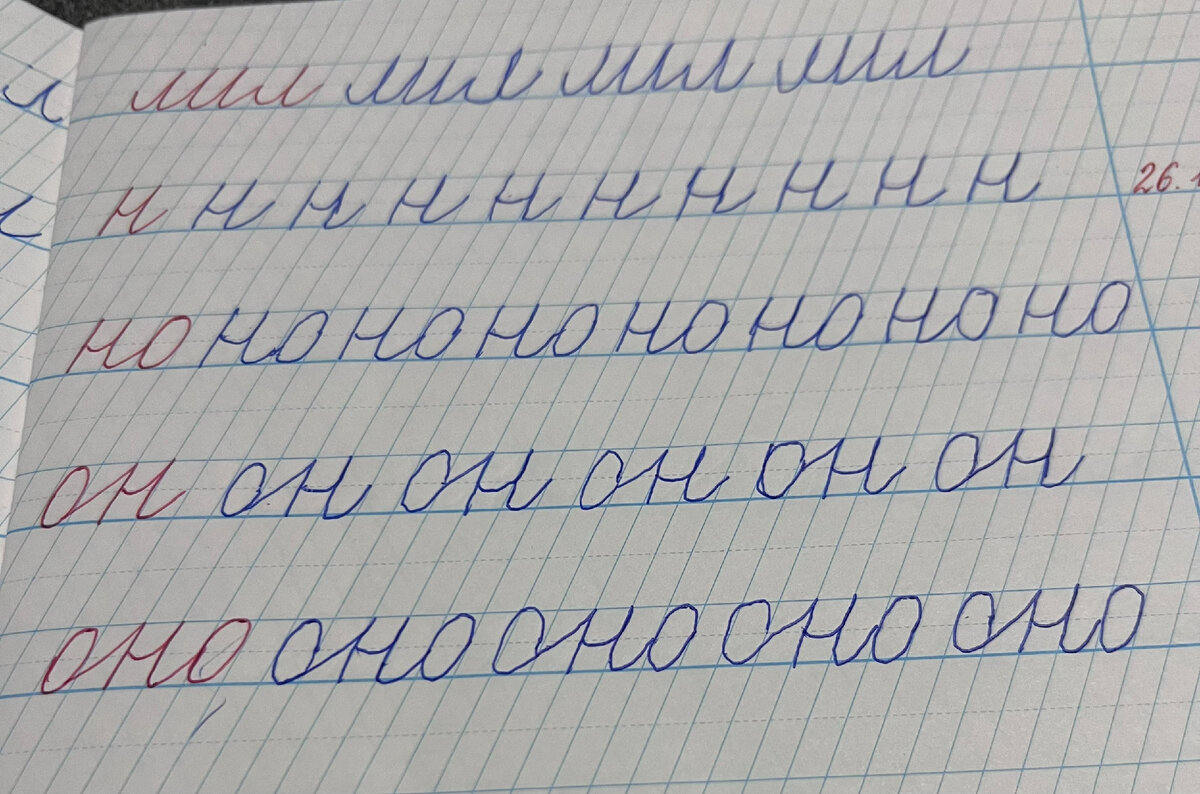 лил лил лил лил
н н н н н н н н н н
но но но но но но но но
он он он он он он
оно оно оно оно оно
26.